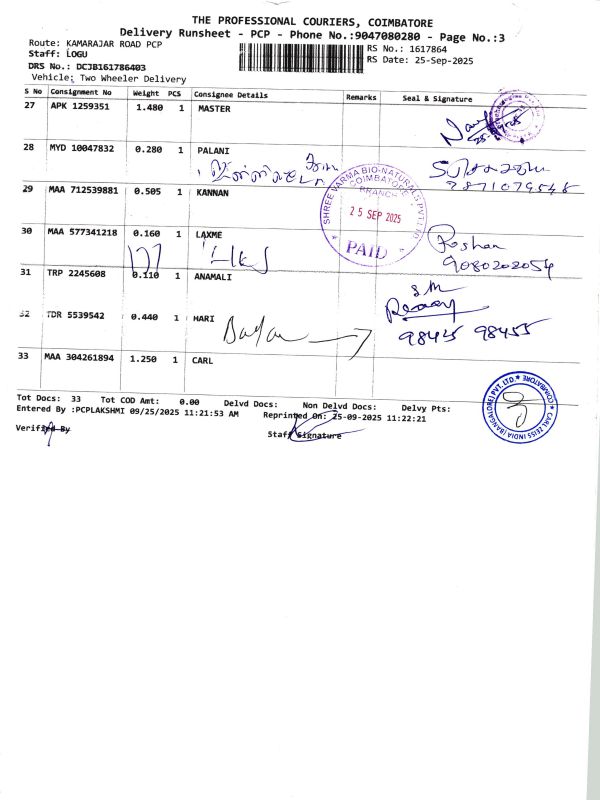 THE PROFESSIONAL COURIERS, COIMBATORE
Delivery Runsheet - PCP - Phone No.:9047080280 - Page No.:3
Route: KAMARAJAR ROAD PCP
RS No.: 1617864
Staff: LOGU
RS Date: 25-Sep-2025
DRS No.: DCJB161786403
Vehicle: Two Wheeler Delivery
S No Consignment No Weight PCS Consignee Details Remarks Seal & Signature
27 APK 1259351 1.480 1 MASTER
28 MYD 10047832 0.280 1 PALANI
29 MAA 712539881 0.505 1 KANNAN
SHREE VARMA BIO-NATURALS PVT LTD
COIMBATORE
BRANCH
25 SEP 2025
PAID
30 MAA 577341218 0.160 1 LAXME
Roshan
9080202054
31 TRP 2245608 0.110 1 ANAMALI
32 TDR 5539542 0.440 1 HARI
98425 98455
33 MAA 304261894 1.250 1 CARL
CARL ZEISS INDIA (BANGALORE) PVT. LTD. COIMBATORE
Tot Docs: 33 Tot COD Amt: 0.00 Delvd Docs: Non Delvd Docs: Delvy Pts:
Entered By :PCPLAKSHMI 09/25/2025 11:21:53 AM Reprinted On: 25-09-2025 11:22:21
Verified By
Staff Signature